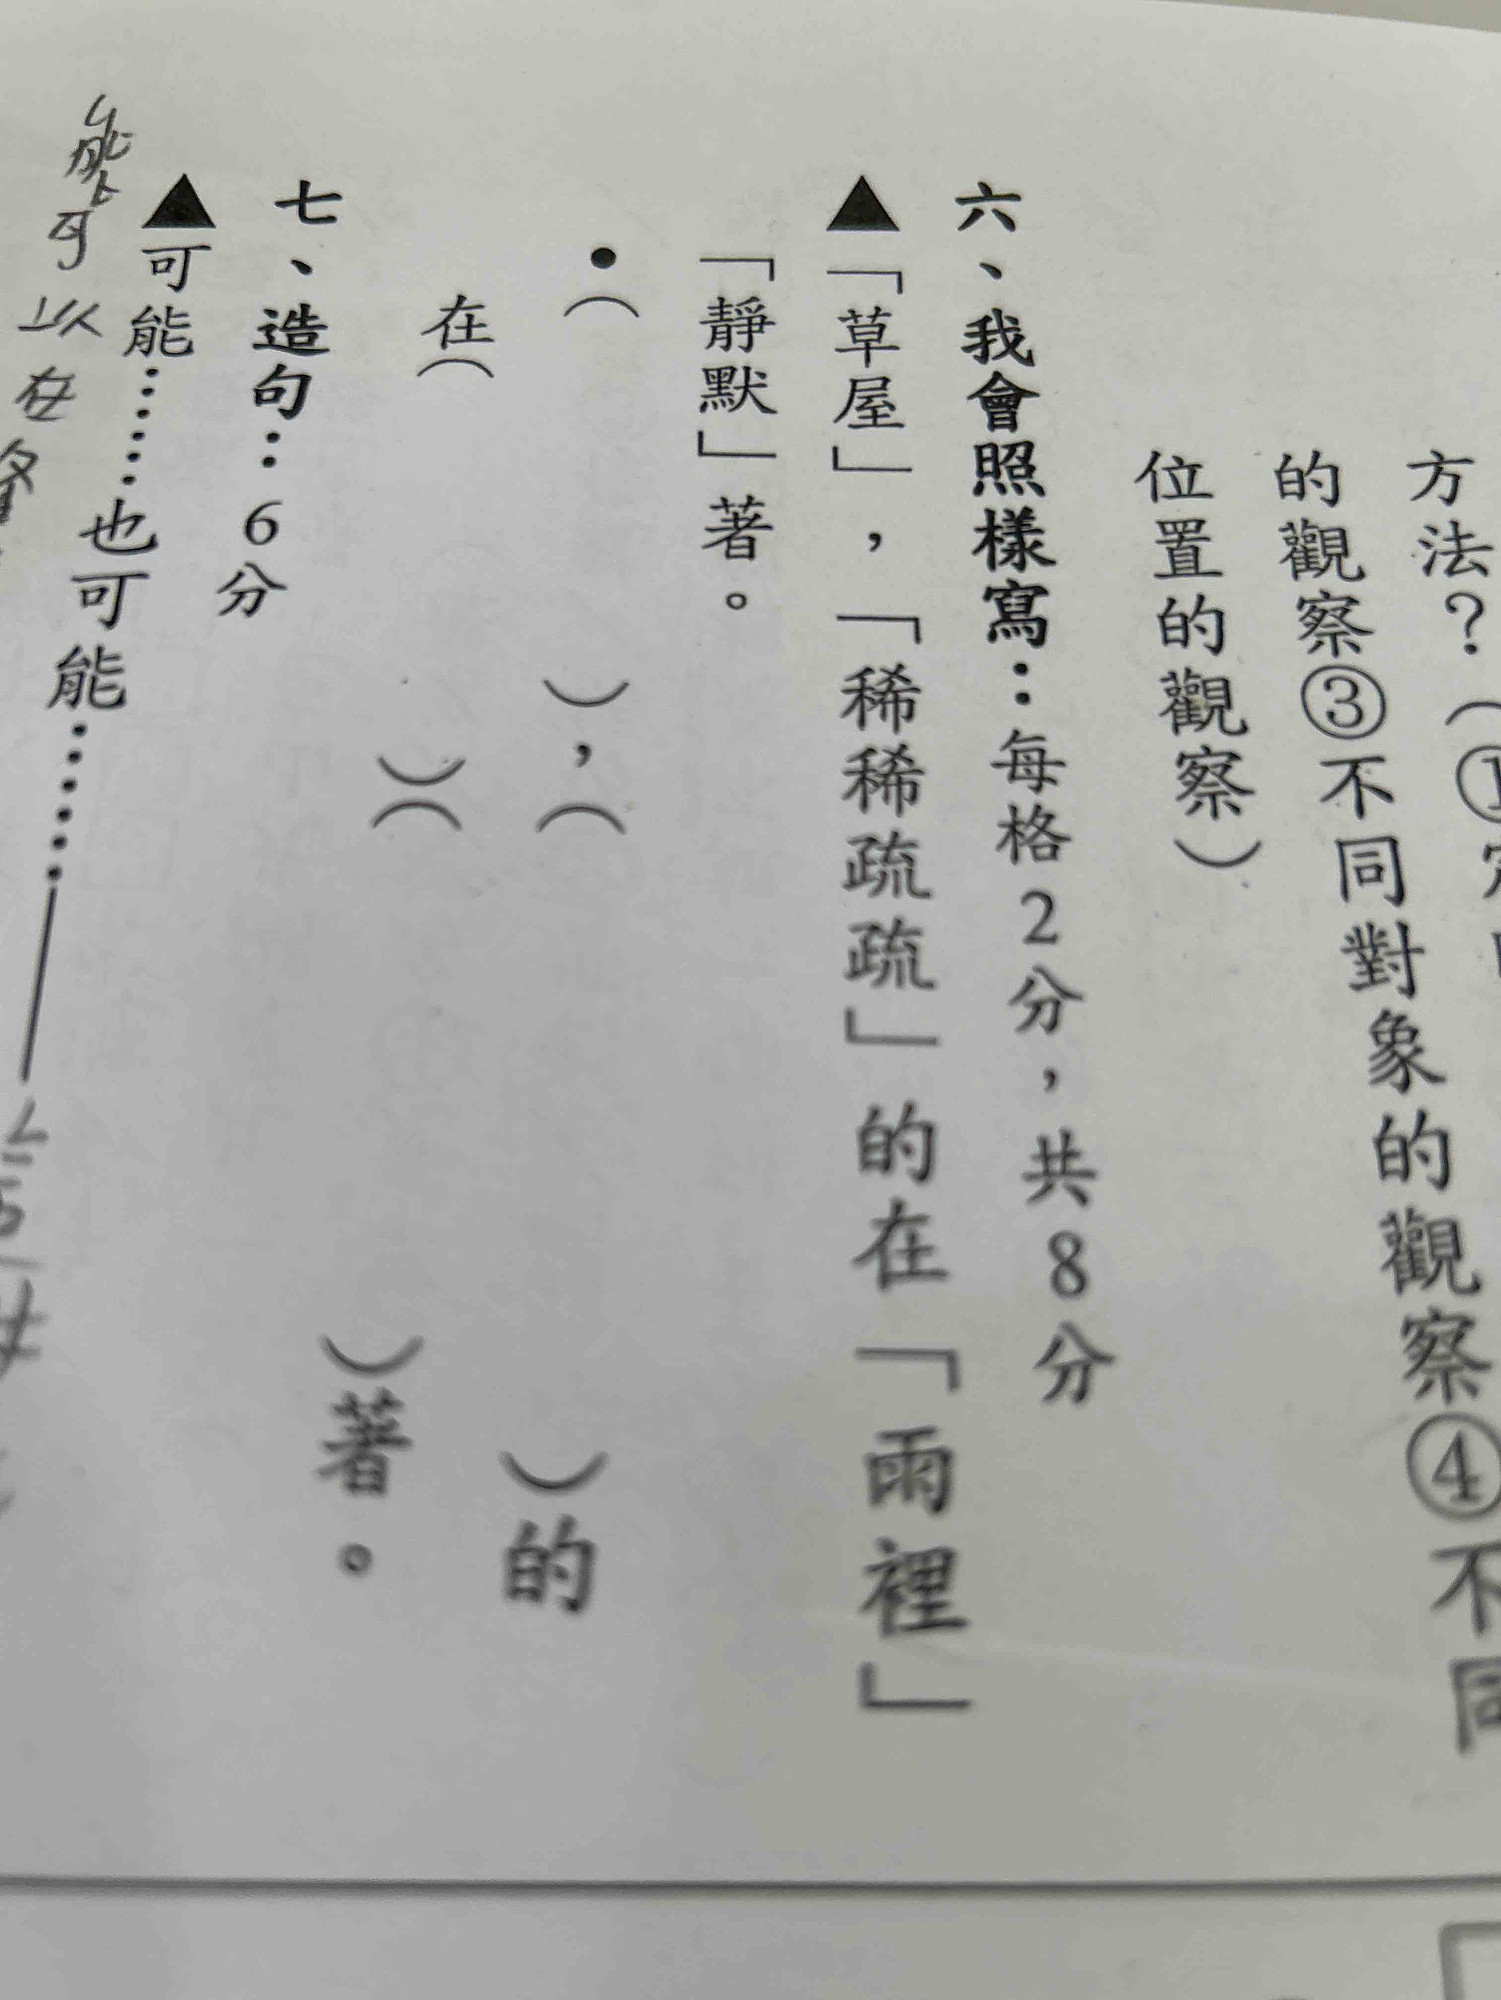 方法？（①
的觀察③不同對象的觀察④不同
位置的觀察）
六、我會照樣寫：每格2分，共8分
▲「草屋」，「稀稀疏疏」的在「雨裡」
「靜默」著。
•（　　），（　　）的
在（　　）（　　）著。
七、造句：6分
▲可能……也可能……
能可以在